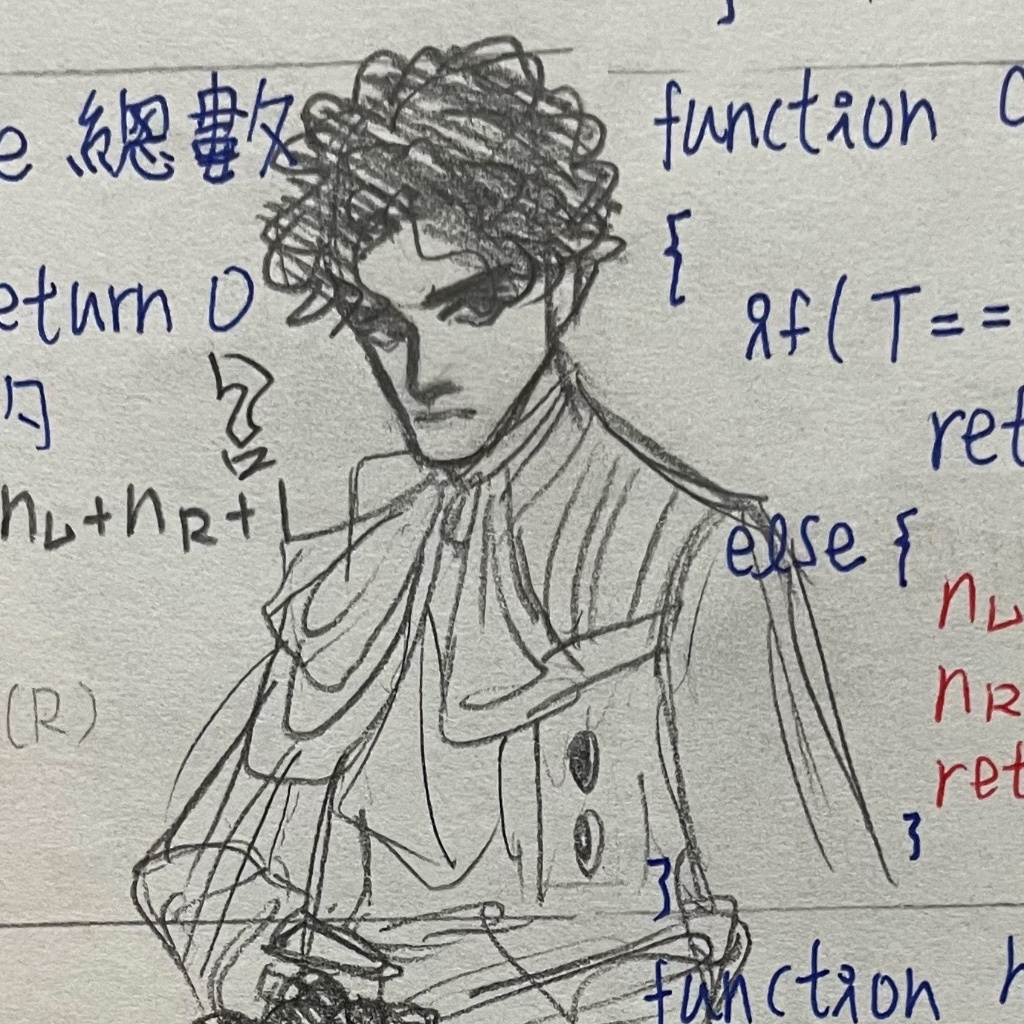 e 總數
eturn 0
的
nL+nR+1
(R)
}
function C
{
if(T==
ret
else {
nL
nR
ret
}
}
function h